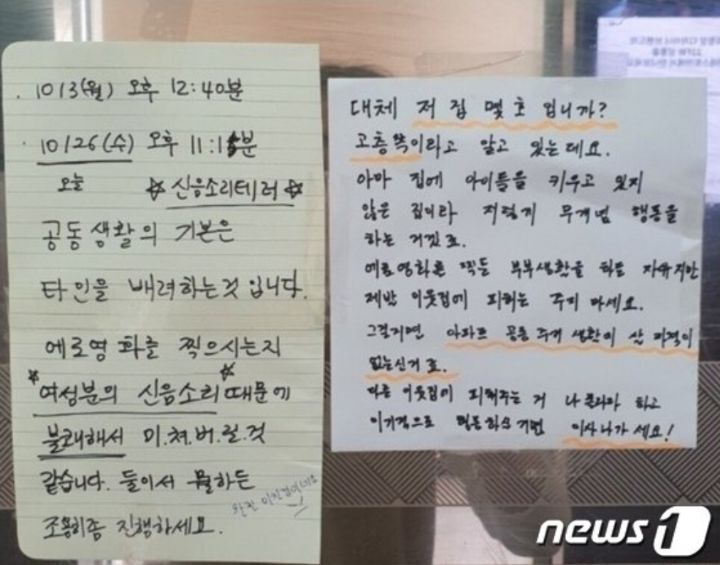 . 10 13(월) 오후 12:40분
10/26(수) 오후 11:15분
오늘 ☆신음소리테러☆
공동생활의 기본은
타인을 배려하는것 입니다.
에로영화를 찍으시는지
*여성분의 신음소리* 때문에
불쾌해서 미.쳐.버.릴.것
같습니다. 둘이서 뭘하든
조용히좀 진행하세요.
완전 이기적이네요
대체 저 집 몇 호 입니까?
고층쪽이라고 알고 있는데요.
아마 집에 아이들을 키우고 있지
않은 집이라 저렇게 무개념 행동을
하는 거겠죠.
에로영화를 찍든 부부생활을 하든 자유지만
제발 이웃집에 피해는 주지 마세요.
그럴거면 아파트 공동 주거 생활에 살 자격이
없는신거죠.
다른 이웃집에 피해주는 거 나 몰라라 하고
이기적으로 행동하실거면 이사 나가 세요!
news1